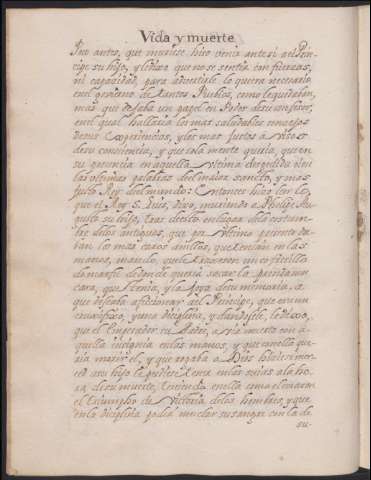 Vida y muerte
Poco antes, que muriese, hizo venir ante si a el Prin-
cipe su hijo, y dixole que no se sentia con fuerzas,
ni capacidad, para advertirle lo que era necesario
en el govierno de tantos Pueblos, como le quedaban,
mas que dexaba un papel en Poder de su confesor,
en el qual hallaria los mas saludables consejos
de sus experiencias, y los mas justos avisos
de su consciencia, y que sola mente queria, que en
su presencia en aquella ultima despedida oiese
las ultimas palabras del maior sancto, y mas
justo Rey del mundo: Entonces hizo leer lo
que el Rey S. Luis, dixo, muriendo a Philipe Au-
gusto su hijo, tras desto en lugar de la costum-
bre de los antiguos, que por ultimo presente da-
ban los mas caros anillos, que tenian en las
manos, mando, que le traxesen un cofrecillo
de marfil de donde queria sacar la prenda mas
cara, que tenia, y la joya de su memoria, a
que deseaba aficionar al Principe, que era un
crucifixo, y una disciplina, y dandosele, le dixo,
que el Emperador su Padre, avia muerto con a-
quella insignia en las manos, y que con ella que-
ria morir el, y que rogaba a Dios hiciese mer-
ced a su hijo la pudiese tener en las suias a la ho-
ra de su muerte, teniendo en ella como el maior
el triumpho de victoria de los hombres, y que
en la disciplina podia mesclar su sangre con la de
su-